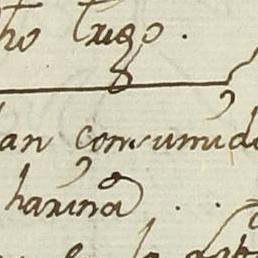 ho trigo.
an consumido
harina . .